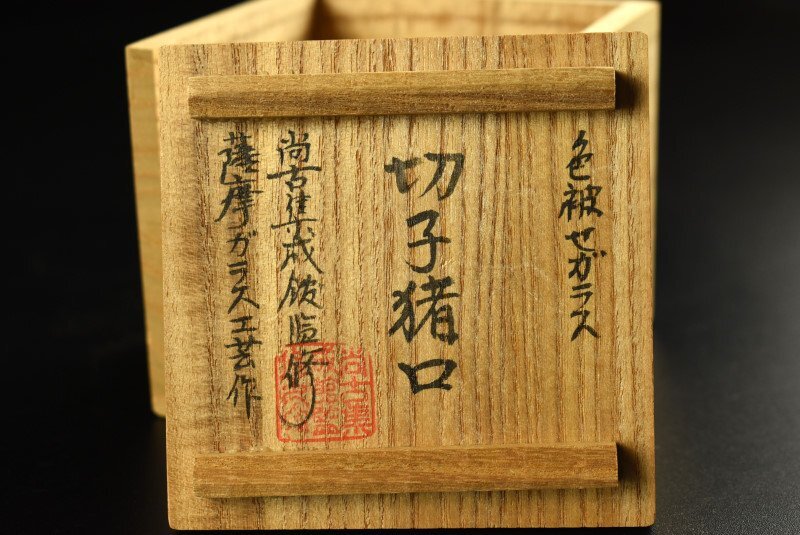 色被せガラス
切子猪口
尚古集成館監修
薩摩ガラス工芸作